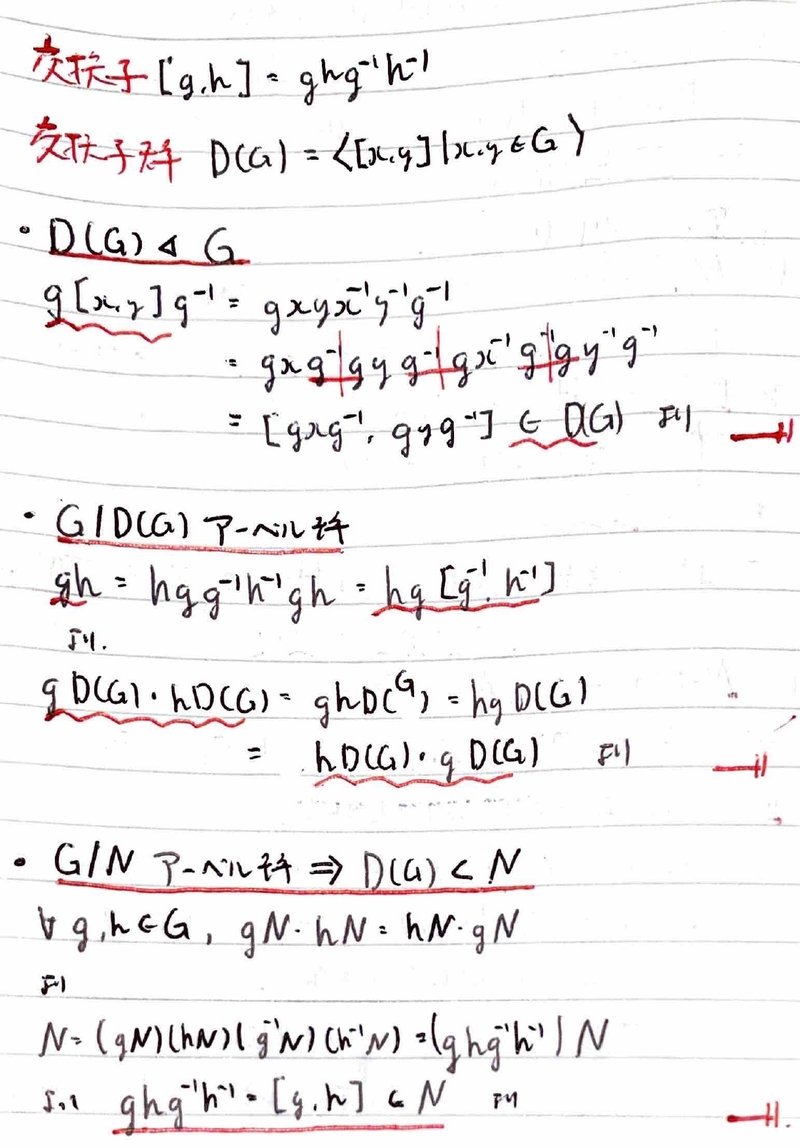 交換子 [g,h] = ghg⁻¹h⁻¹
交換子群 D(G) = ⟨[x,y] | x,y ∈ G⟩
・D(G) ◁ G
g[x,y]g⁻¹ = gxyx⁻¹y⁻¹g⁻¹
= gxg⁻¹|gyg⁻¹|gx⁻¹g⁻¹|gy⁻¹g⁻¹
= [gxg⁻¹, gyg⁻¹] ∈ D(G) より
・G/D(G) アーベル群
gh = hgg⁻¹h⁻¹gh = hg[g⁻¹,h⁻¹]
より.
gD(G)・hD(G) = ghD(G) = hgD(G)
= hD(G)・gD(G) より
・G/N アーベル群 ⇒ D(G) < N
∀g,h∈G, gN・hN = hN・gN
より
N = (gN)(hN)(g⁻¹N)(h⁻¹N) = (ghg⁻¹h⁻¹)N
よって ghg⁻¹h⁻¹ = [g,h] ∈ N より